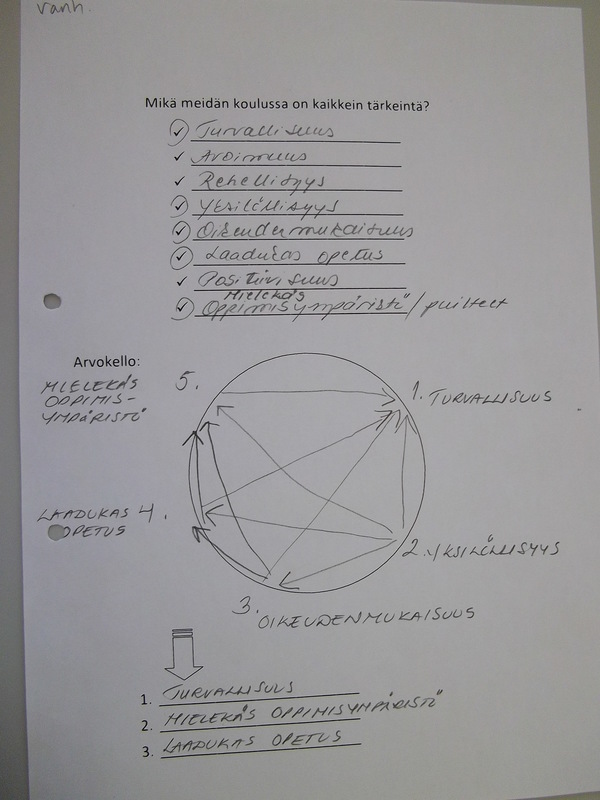 vanh.
Mikä meidän koulussa on kaikkein tärkeintä?
Turvallisuus
Avoimuus
Rehellisyys
Yksilöllisyys
Oikeudenmukaisuus
Laadukas opetus
Positiivisuus
Mielekäs
Oppimisympäristö / puitteet
Arvokello:
MIELEKÄS
OPPIMIS-
YMPÄRISTÖ
5.
1. TURVALLISUUS
LAADUKAS 4.
OPETUS
2. YKSILÖLLISYYS
3. OIKEUDENMUKAISUUS
1. TURVALLISUUS
2. MIELEKÄS OPPIMISYMPÄRISTÖ
3. LAADUKAS OPETUS